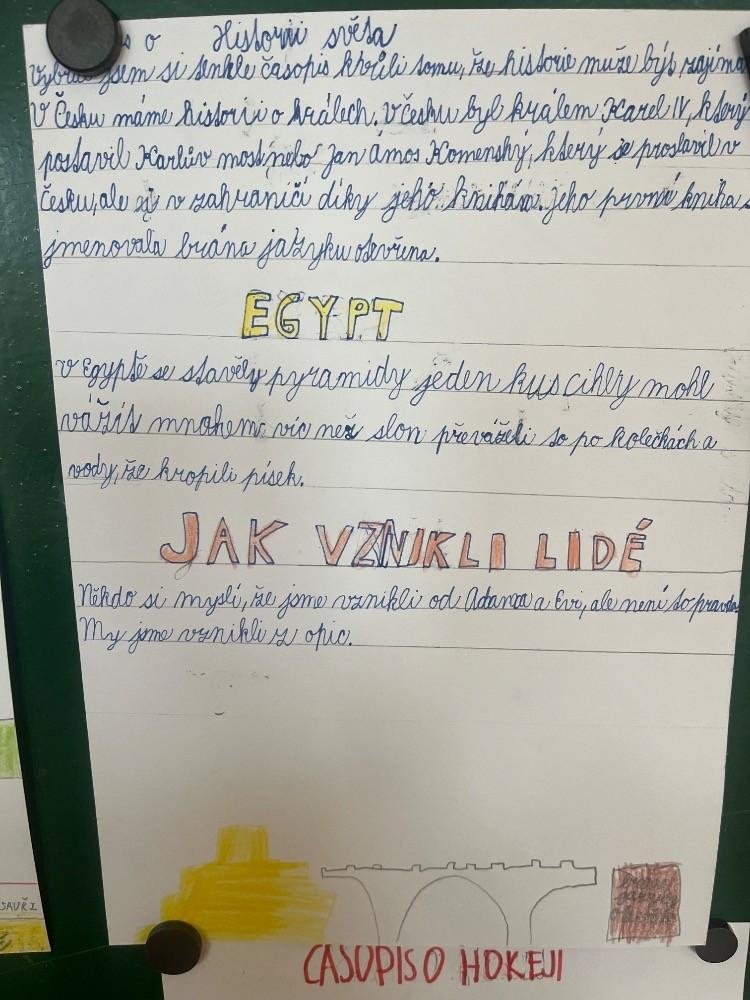 s o Historii světa
Vybral jsem si tenhle časopis kvůli tomu, že historie muže být zajíma
V Česku máme historii o králech. V Česku byl králem Karel IV, který
postavil Karlův most nebo Jan Ámos Komenský, který se proslavil v
Česku, ale i v zahraničí díky jeho knihám. Jeho první kniha s
jmenovala brána jazyku otevřena.
EGYPT
V Egyptě se stavěly pyramidy jeden kus cihly mohl
vážit mnohem víc než slon převáželi to po kolečkách a
vody, že kropili písek.
JAK VZNIKLI LIDÉ
Někdo si myslí, že jsme vznikli od Adama a Evi, ale není to pravda
My jsme vznikli z opic.
SAUŘI
ČASOPIS O HOKEJI